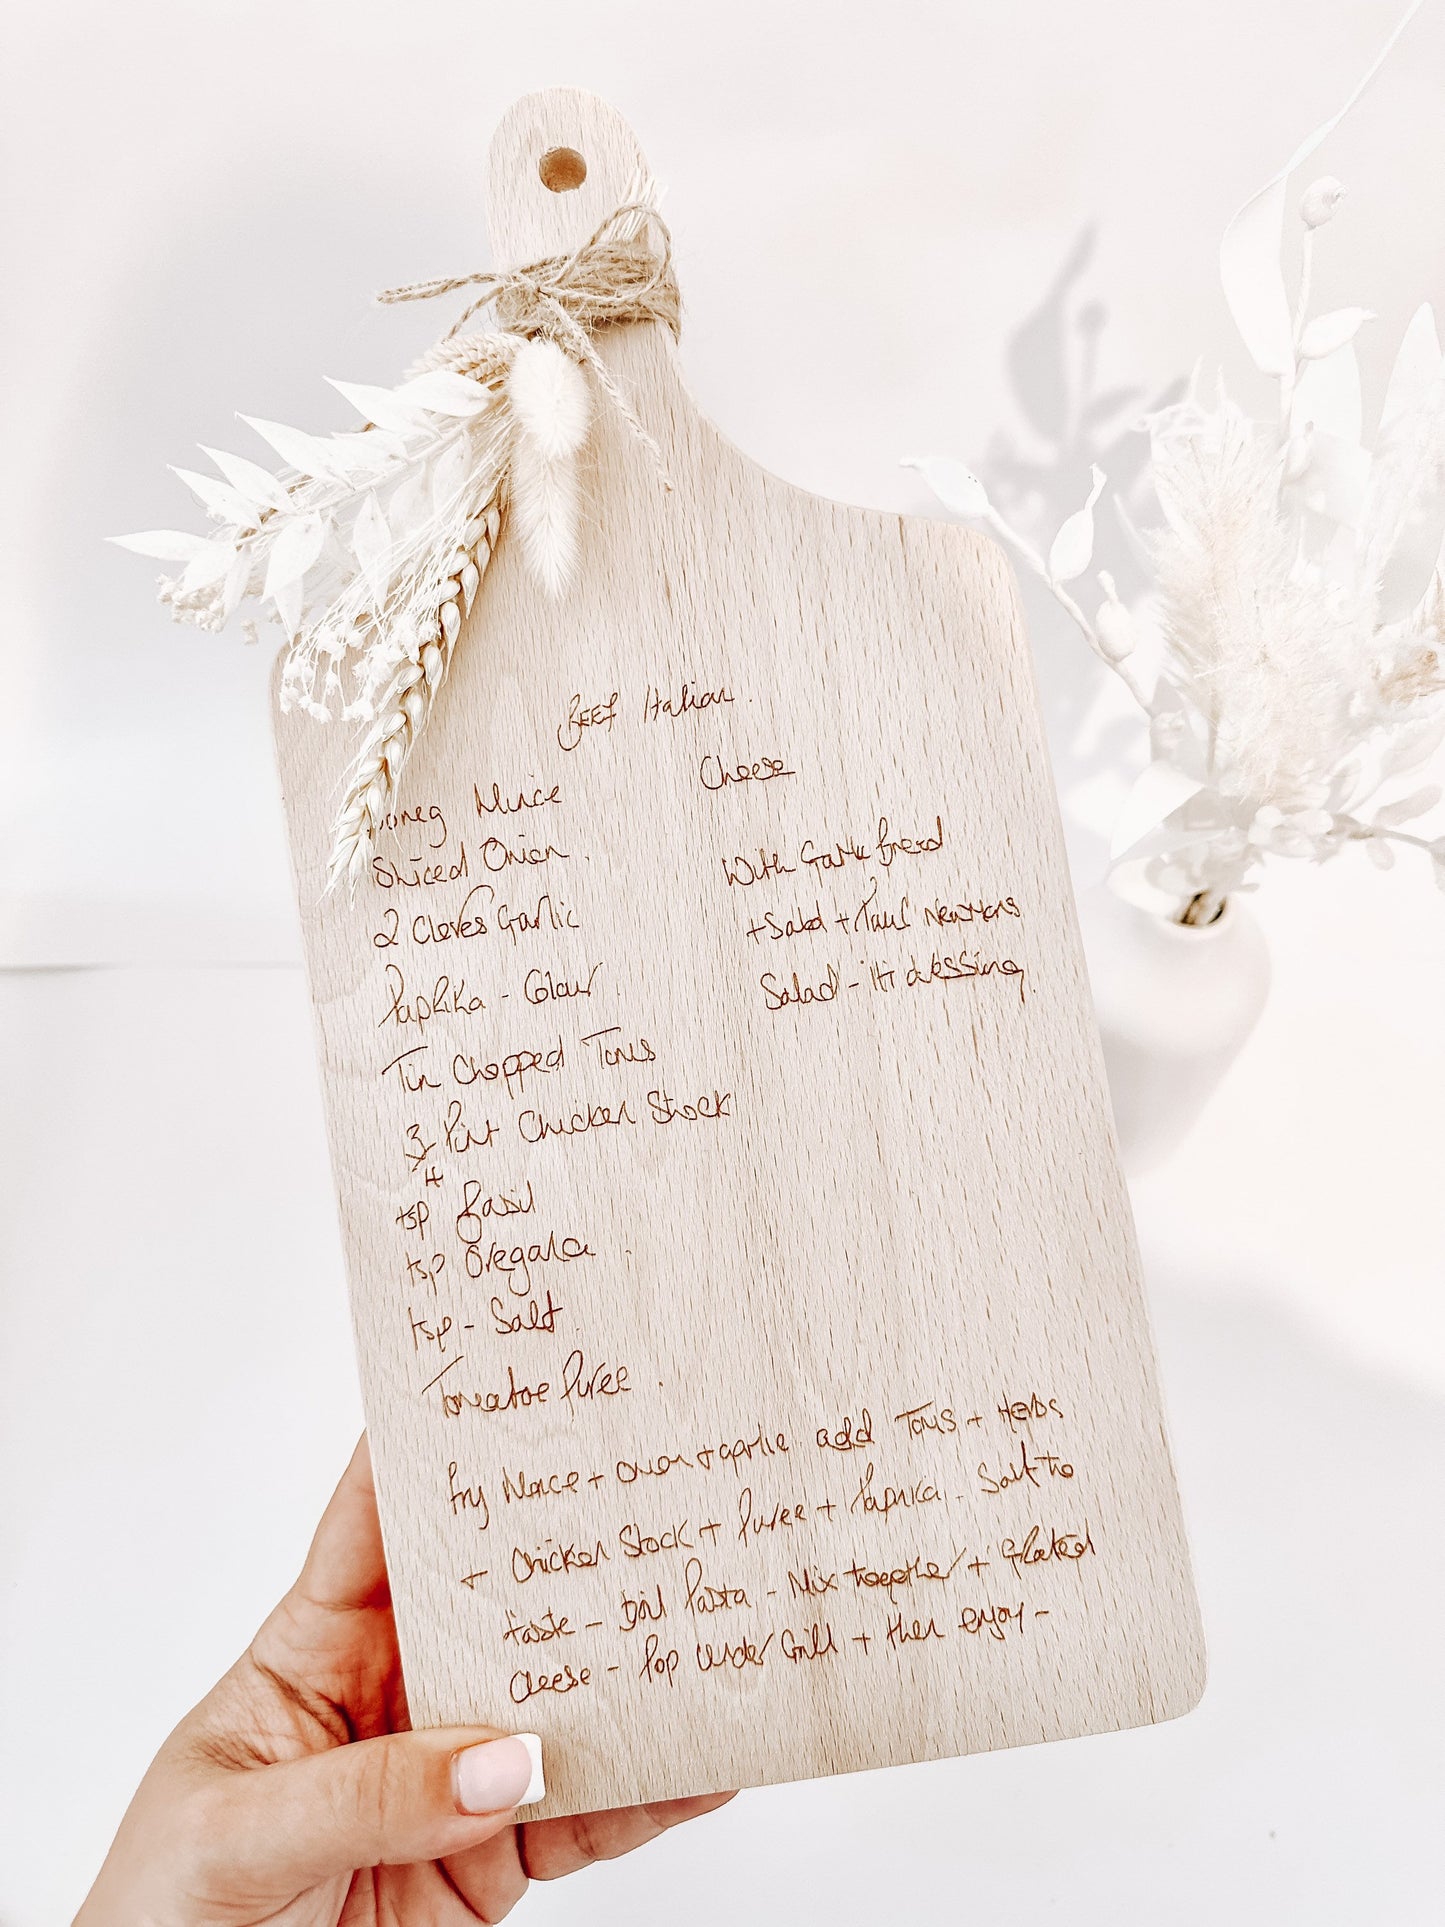 BEEF Italian.
Mince
Sliced Onion.
2 Cloves Garlic
Paprika - Colour.
Tin Chopped Toms
3/4 Pint Chicken Stock
tsp Basil
tsp Oregano.
tsp - Salt.
Tomatoe Puree.
Cheese
With Garlic Bread
+ Salad + Paul Newmans
Salad - iti dressing.
Fry Mince + onion + garlic. add Toms + Herbs
+ Chicken Stock + Puree + Paprika - Salt to
taste - boil Pasta - Mix together + Grated
Cheese - Pop under Grill + then enjoy -